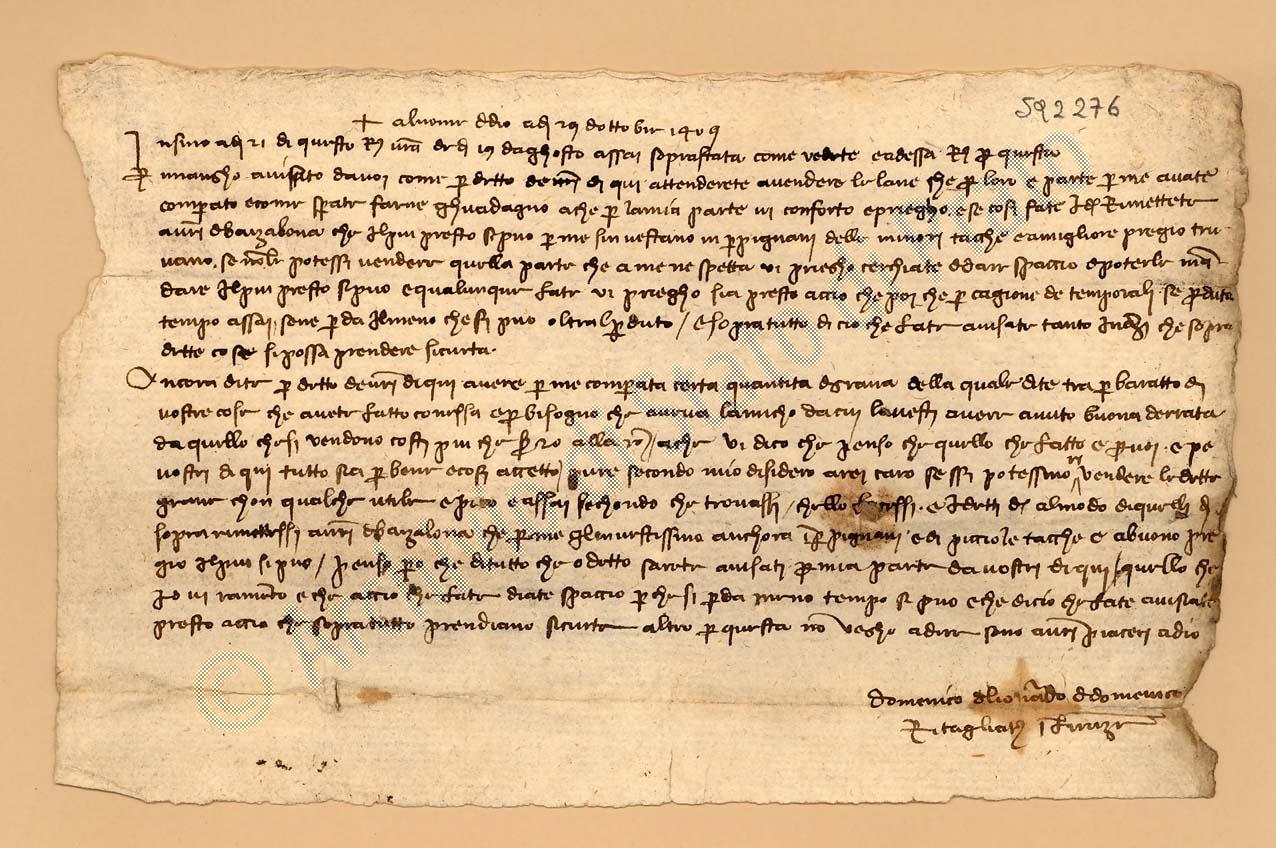 592276
+ al nome d dio adi 29 dottobre 1409
Insino adi 21 di questo R vra de d 19 daghosto assai soprastata come vedete e adessa R p questa
Rimangho avisato da voi come p detto de vri di qui attenderete a vendere le lane che p loro e parte p me avate
comperato e come sperate farne ghuadagno a che p la mia parte vi conforto e priegho e se cosi fate Id Rimettete
a vri d barzalona che il piu presto si puo p me sinvestano in perpignani delle minori tacche e a migliore pregio tru
vano. se nolle potessi vendere quella parte che a me ne spetta vi priegho cerchiate d dare spaccio e poterle man
dare il piu presto si puo e qualunque fate vi priegho sia presto accio che poi che p cagione de temporali se perduta
tempo assai, se ne perda il meno che si puo oltral perduto / e sopra tutto di cio che fate avisate tanto inanzi che sopra
dette cose si possa prendere sicurta.
Ancora dite p detto de vri di qui avere p me comperata certa quantita d grana della quale dite tra p baratto di
vostre cose che avete fatto con essa e p bisogno che aveva lamicho da cui lavesti avere avuto buona derrata
da quello che si vendono costi piu che alla / a che vi dico che penso che quello che fatto e p voi e pe
vostri di qui tutto sia p bene e cosi accetto pure secondo mio disidero arei caro se si potessino vendere le dette
grane chon qualche utile e picco e assai sechondo che trovassi / chello facessi. e i detti d al modo di quelli di
sopra rimettessi a vri d barzalona che p me glinvestissino anchora i perpignani e di picciole tacche e a buono pre
gio il piu si puo / penso pero che di tutto che o detto sarete avisati p mia parte da vostri di qui / quello che
io vi ramento e che accio che fate diate spaccio p che si perda meno tempo si puo e che di cio che fate avisiate
presto accio che sopra tutto prendiano sicurta altro p questa no vegho a dire sono a vri piaceri adio
domenico di lionardo d domenico
Ritagliatore i firenze